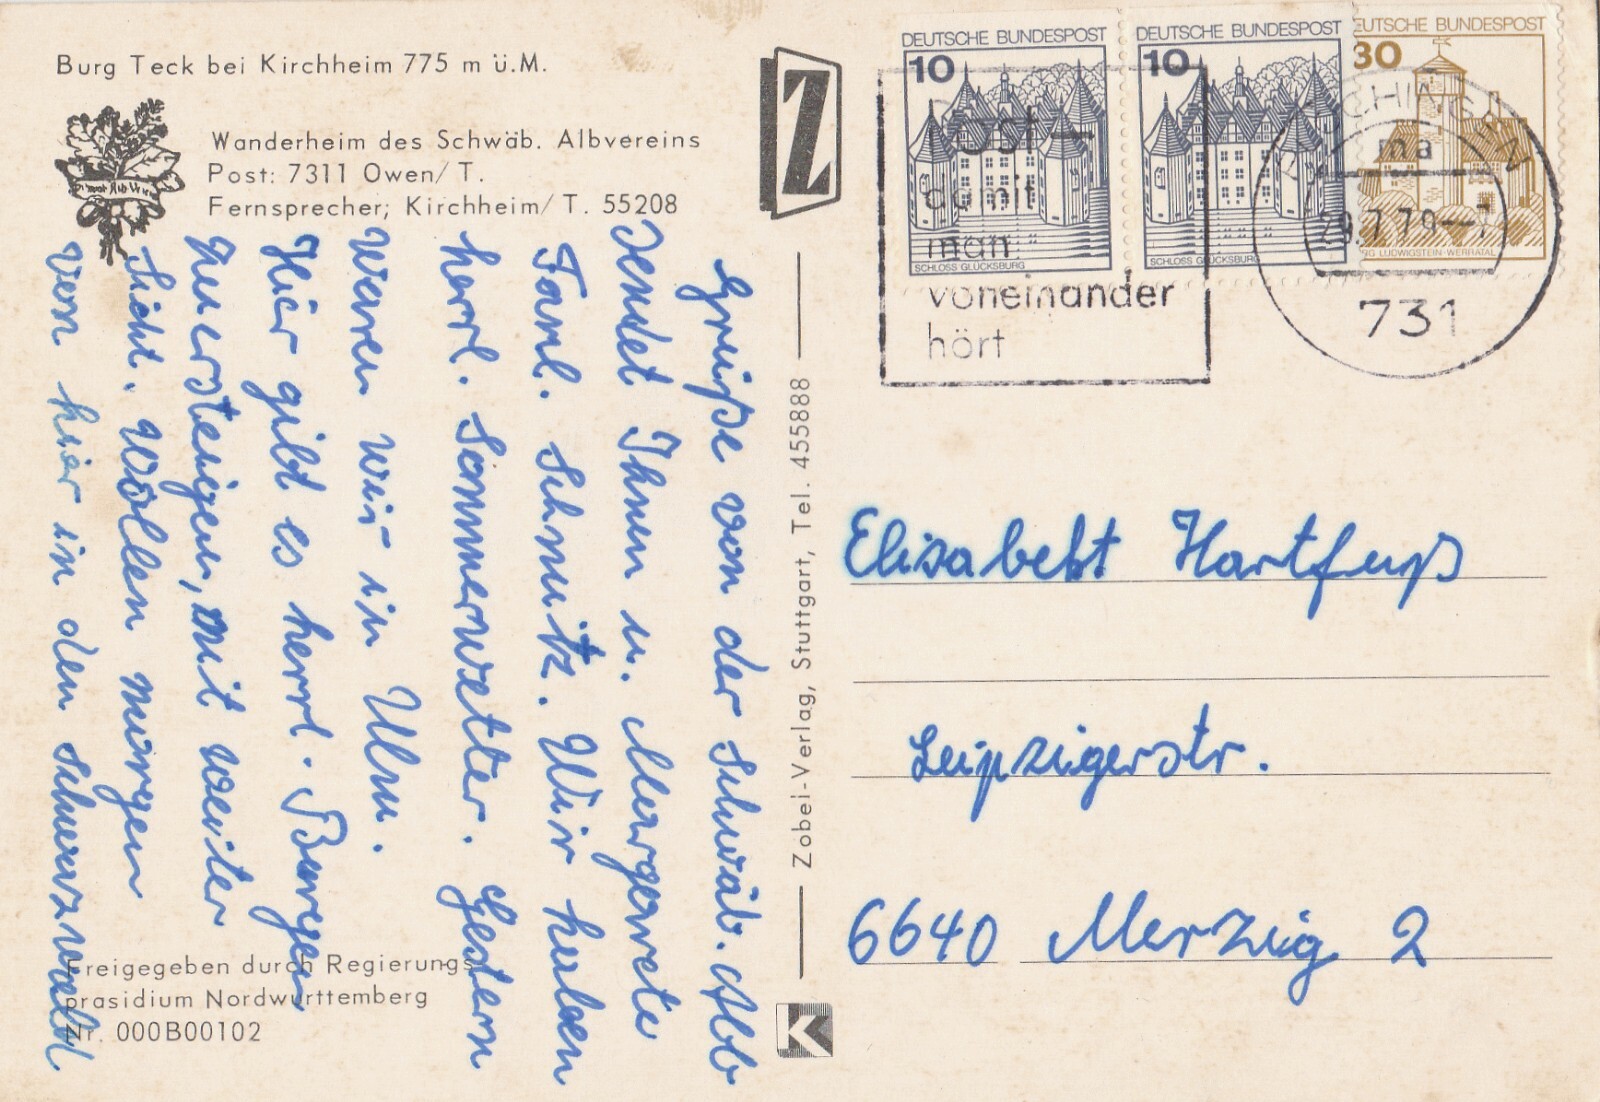 Burg Teck bei Kirchheim 775 m ü.M.
Wanderheim des Schwäb. Albvereins
Post: 7311 Owen/ T.
Fernsprecher; Kirchheim/ T. 55208
Grüße von der Schwäb. Alb
sendet Ihnen u. Margarete
Faml. Schmitz. Wir haben
herrl. Sommerwetter. Gestern
waren wir in Ulm.
Hier gibt es herrl. Burgen
mit weiter
Sicht. Wollen morgen
von hier in den Schwarzwald
Freigegeben durch Regierungs
präsidium Nordwürttemberg
Nr. 000B00102
Zobel-Verlag, Stuttgart, Tel. 4558888
Z
K
DEUTSCHE BUNDESPOST
10
SCHLOSS GLÜCKSBURG
DEUTSCHE BUNDESPOST
10
SCHLOSS GLÜCKSBURG
DEUTSCHE BUNDESPOST
30
BURG LUDWIGSTEIN-WERRATAL
Post—
damit
man
voneinander
hört
ma
29.7.79—7
731
Elisabeht Hartfuß
Leipzigerstr.
6640 Merzig 2